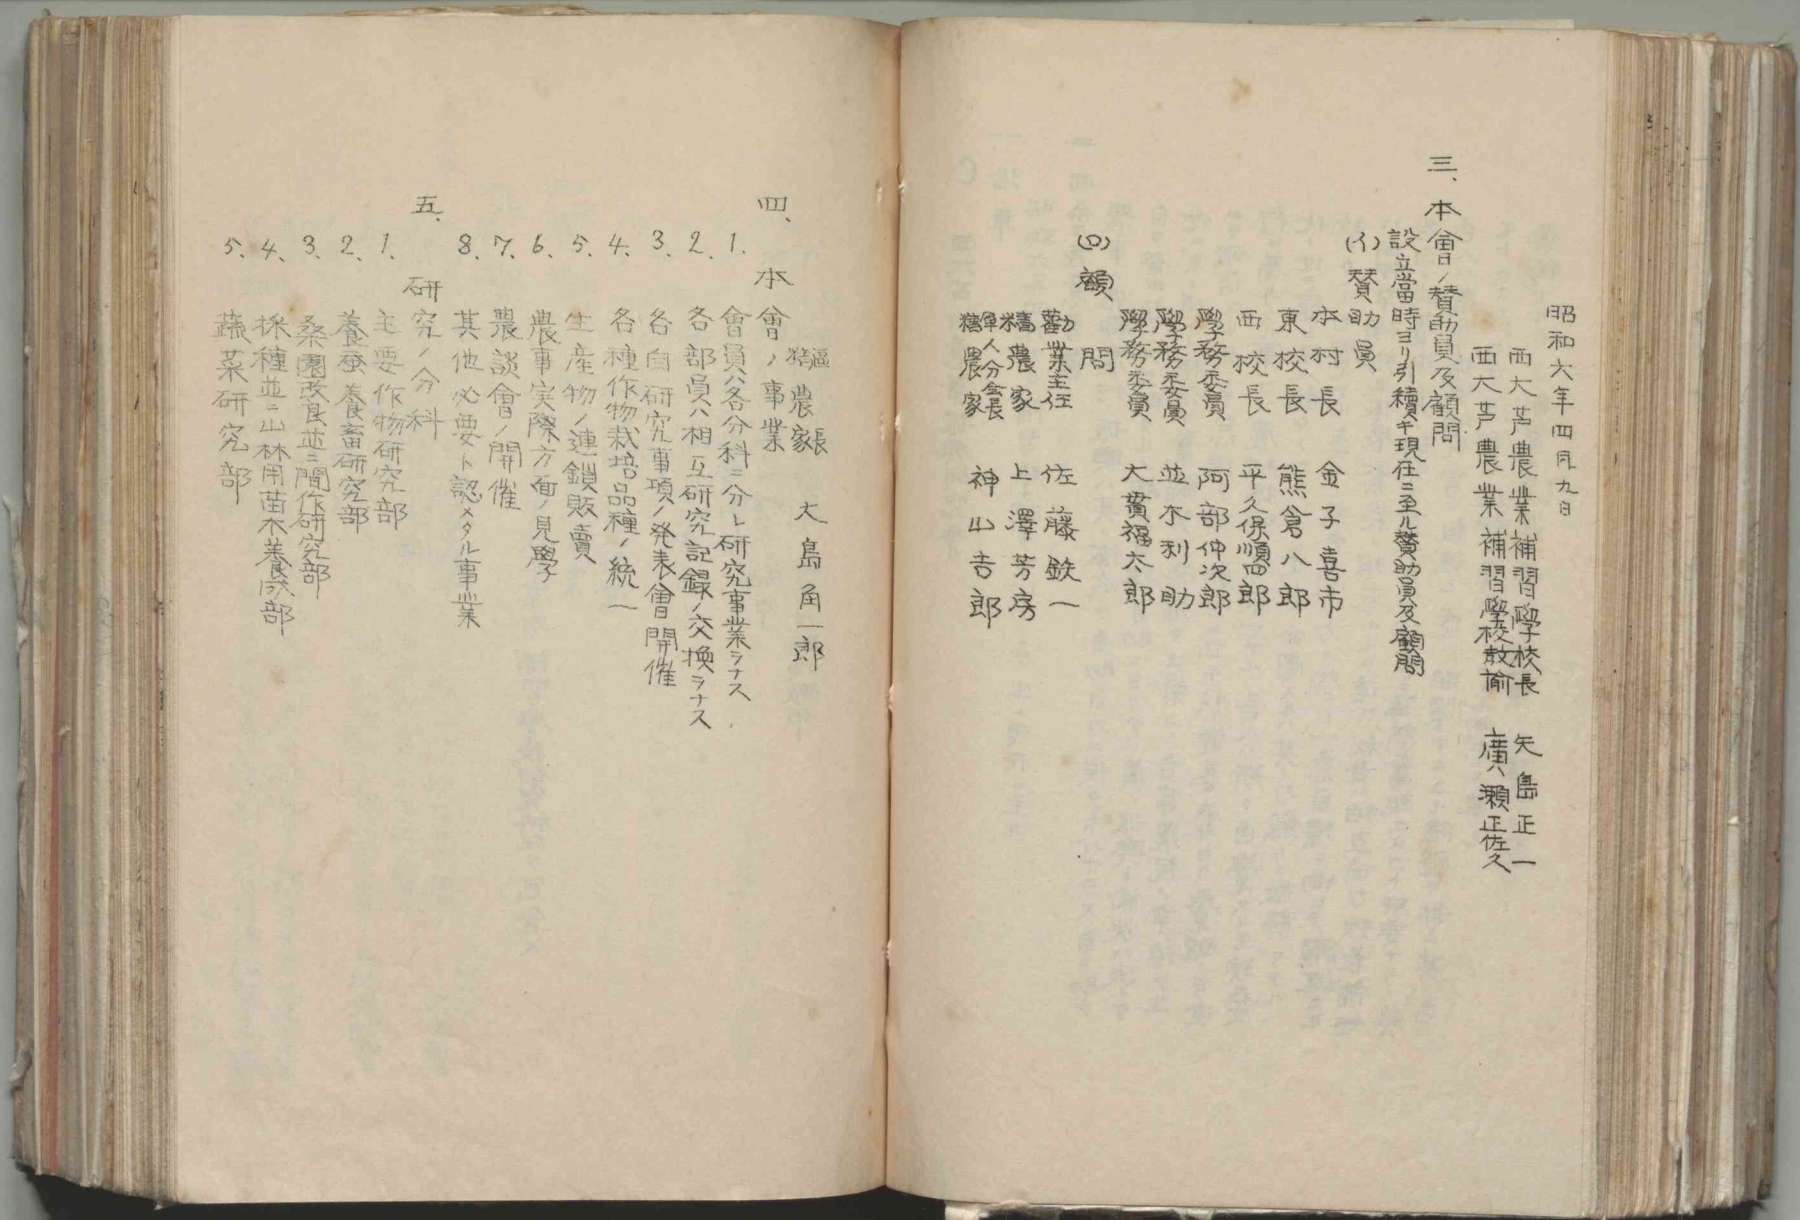 昭和六年四月九日
西大芦農業補習學校長 矢島正一
西大芦農業補習學校教諭 廣瀬正佐久
三、本會ノ賛助員及顧問
設立當時ヨリ引續キ現在ニ至ル賛助員及顧問
(イ)賛助員
本村長 金子喜市
東校長 熊倉八郎
西校長 平久保順四郎
學務委員 阿部仲次郎
學務委員 並木利助
學務委員 大貫福太郎
(ロ)顧問
勸業主任 佐藤鉄一
篤農家 上澤芳房
軍人分會長
篤農家 神山吉郎
區長
篤農家 大島角一郎
四、本會ノ事業
1、會員ハ各分科ニ分レ研究事業ヲナス
2、各部員ハ相互研究記録ノ交換ヲナス
3、各自研究事項ノ発表會開催
4、各種作物栽培品種ノ統一
5、生産物ノ連鎖販賣
6、農事実際方面ノ見學
7、農談會ノ開催
8、其他必要ト認メタル事業
五、研究ノ分科
1、主要作物研究部
2、養蚕養畜研究部
3、桑園改良並ニ間作研究部
4、採種並ニ山林用苗木養成部
5、蔬菜研究部